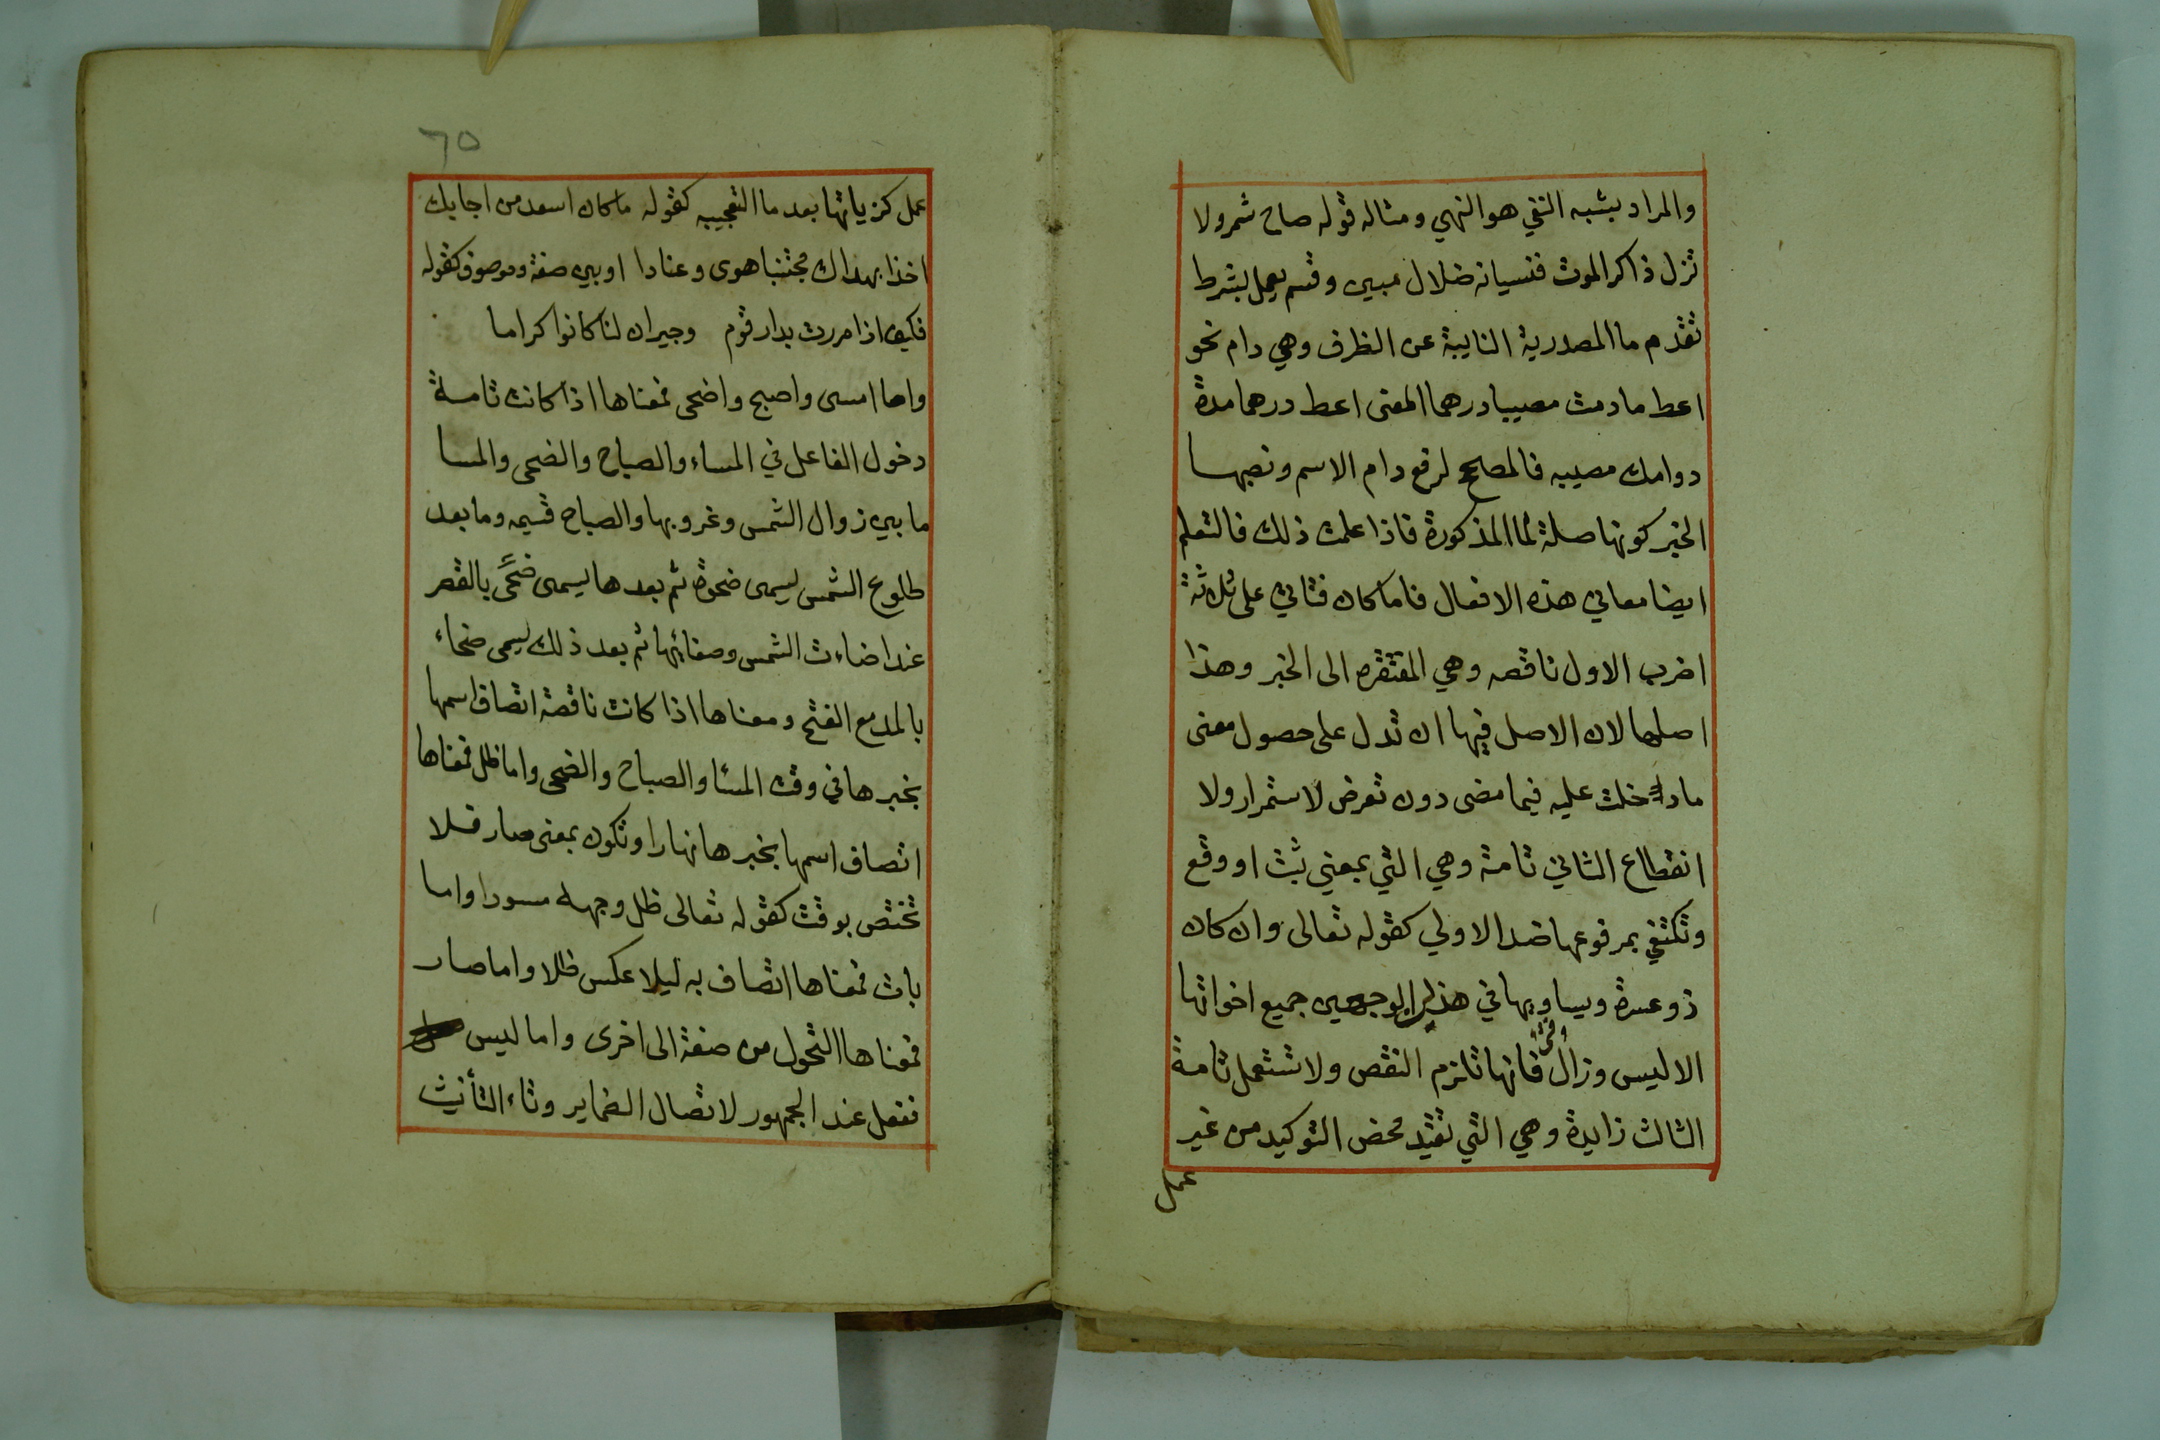 والمراد بشبه النفي هو النهي ومثاله قوله صاح شمر ولا
تزل ذاكر الموت فنسيانه ضلال مبين وقسم يعمل بشرط
تقدم ما المصدرية النايبة عن الظرف وهي دام نحو
اعط ما دمت مصيبا درهما المعنى اعط درهما مدة
دوامك مصيبه فالمصلح لرفع دام الاسم ونصبها
الخبر كونها صلة لما المذكورة فاذا علمت ذلك فالتعلم
ايضا معاني هذه الافعال فاما كان فتاتي على ثلاثة
اضرب الاول ناقصه وهي المفتقره الى الخبر وهذا
اصلها لان الاصل فيها ان تدل على حصول معنى
ما دخلت عليه فيما مضى دون تعرض لاستمرار ولا
انقطاع الثاني تامة وهي التي بمعني ثبت او وقع
وتكتفي بمرفوعها ضد الاولي كقوله تعالى وان كان
ذو عسرة ويساويها في هذين الوجهين جميع اخواتها
الا ليس وزال وفتئ فانها تلزم النقص ولا تستعمل تامة
الثالث زايدة وهي التي تفيد محض التوكيد من غير
عمل
٦٥
عمل كزيادتها بعد ما التعجبيه كقوله ما كان اسعد من اجابك
اخذا بهداك مجتنبا هوى وعنادا او بين صفة وموصوف كقوله
فكيف اذا مررت بدار قوم وجيران لنا كانوا كراما
واما امسى واصبح واضحى فمعناها اذا كانت تامة
دخول الفاعل في المساء والصباح والضحى والمسا
ما بين زوال الشمس وغروبها والصباح قسيمه وما بعد
طلوع الشمس ليسمى ضحوة ثم بعدها يسمى ضحًى بالقصر
عند اضاءت الشمس وصفائها ثم بعد ذلك يسمى ضحاء
بالمد مع الفتح ومعناها اذا كانت ناقصة اتصاف اسمها
بخبرها في وقت المسا والصباح والضحى واما ظل فمعناها
اتصاف اسمها بخبرها نهارا وتكون بمعنى صار فلا
تختص بوقت كقوله تعالى ظل وجهه مسودا واما
بات فمعناها اتصاف به ليلا عكس ظلا واما صار
فمعناها التحول من صفة الى اخرى واما ليس
ففعل عند الجمهور لاتصال الضماير وتاء التأنيث